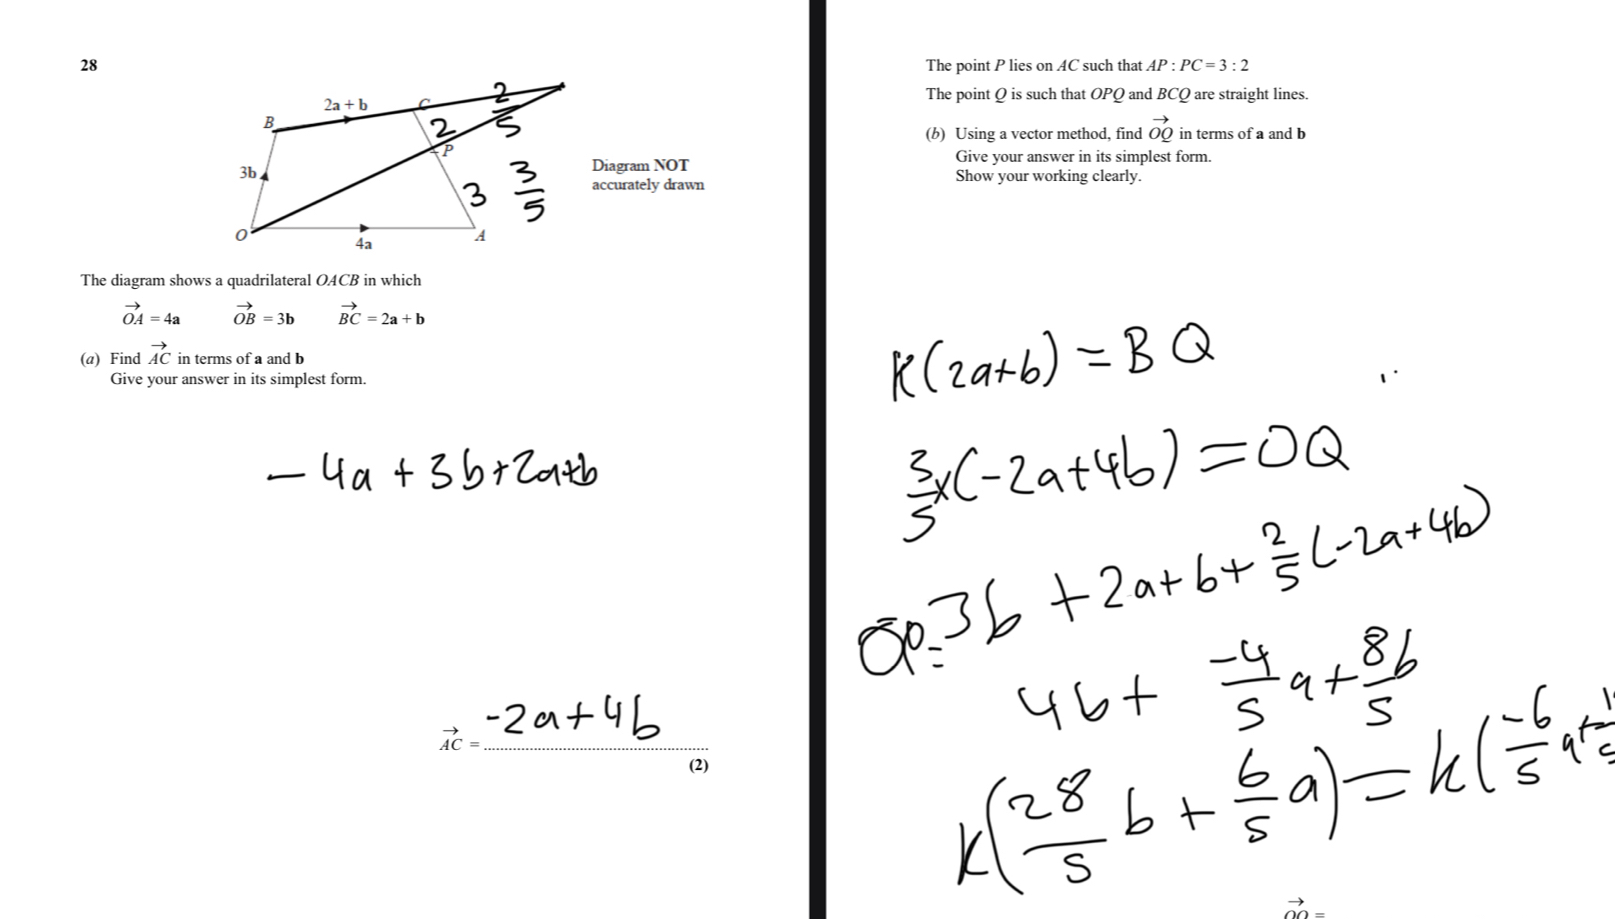 28
2a + b
C
2/5
B
2
P
3b
3
3/5
Diagram NOT
accurately drawn
O
4a
A
The diagram shows a quadrilateral OACB in which
→OA = 4a →OB = 3b →BC = 2a + b
(a) Find →AC in terms of a and b
Give your answer in its simplest form.
- 4a + 3b+2a+b
→AC = -2a+4b
(2)
The point P lies on AC such that AP : PC = 3 : 2
The point Q is such that OPQ and BCQ are straight lines.
(b) Using a vector method, find →OQ in terms of a and b
Give your answer in its simplest form.
Show your working clearly.
K(2a+b) = BQ
3/5x(-2a+4b) = OQ
OP = 3b + 2a+b+ 2/5(-2a+4b)
4b+ -4/5 a+ 8b/5
k(28/5 b + 6/5 a) = k(-6/5 a+
→OQ =